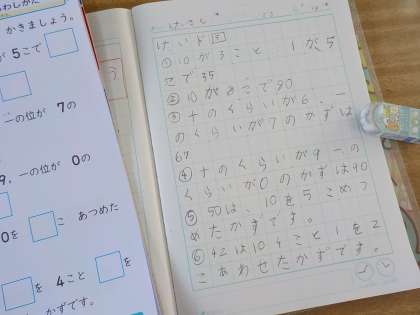 わしかた
かきましょう。
が 5こで
一の位が 7の
9、一の位が 0の
0を こ あつめた
を 4こと を
かずです。
3
①10が3こと 1が5
こで35
②10が8こで80
③十のくらいが6、一
のくらいが7のかずは
67
④十のくらいが9一の
くらいが0のかずは90
⑤50は、10を5こあつ
めたかずです。
⑥42は10 4こと1を2
こあわせたかずです。